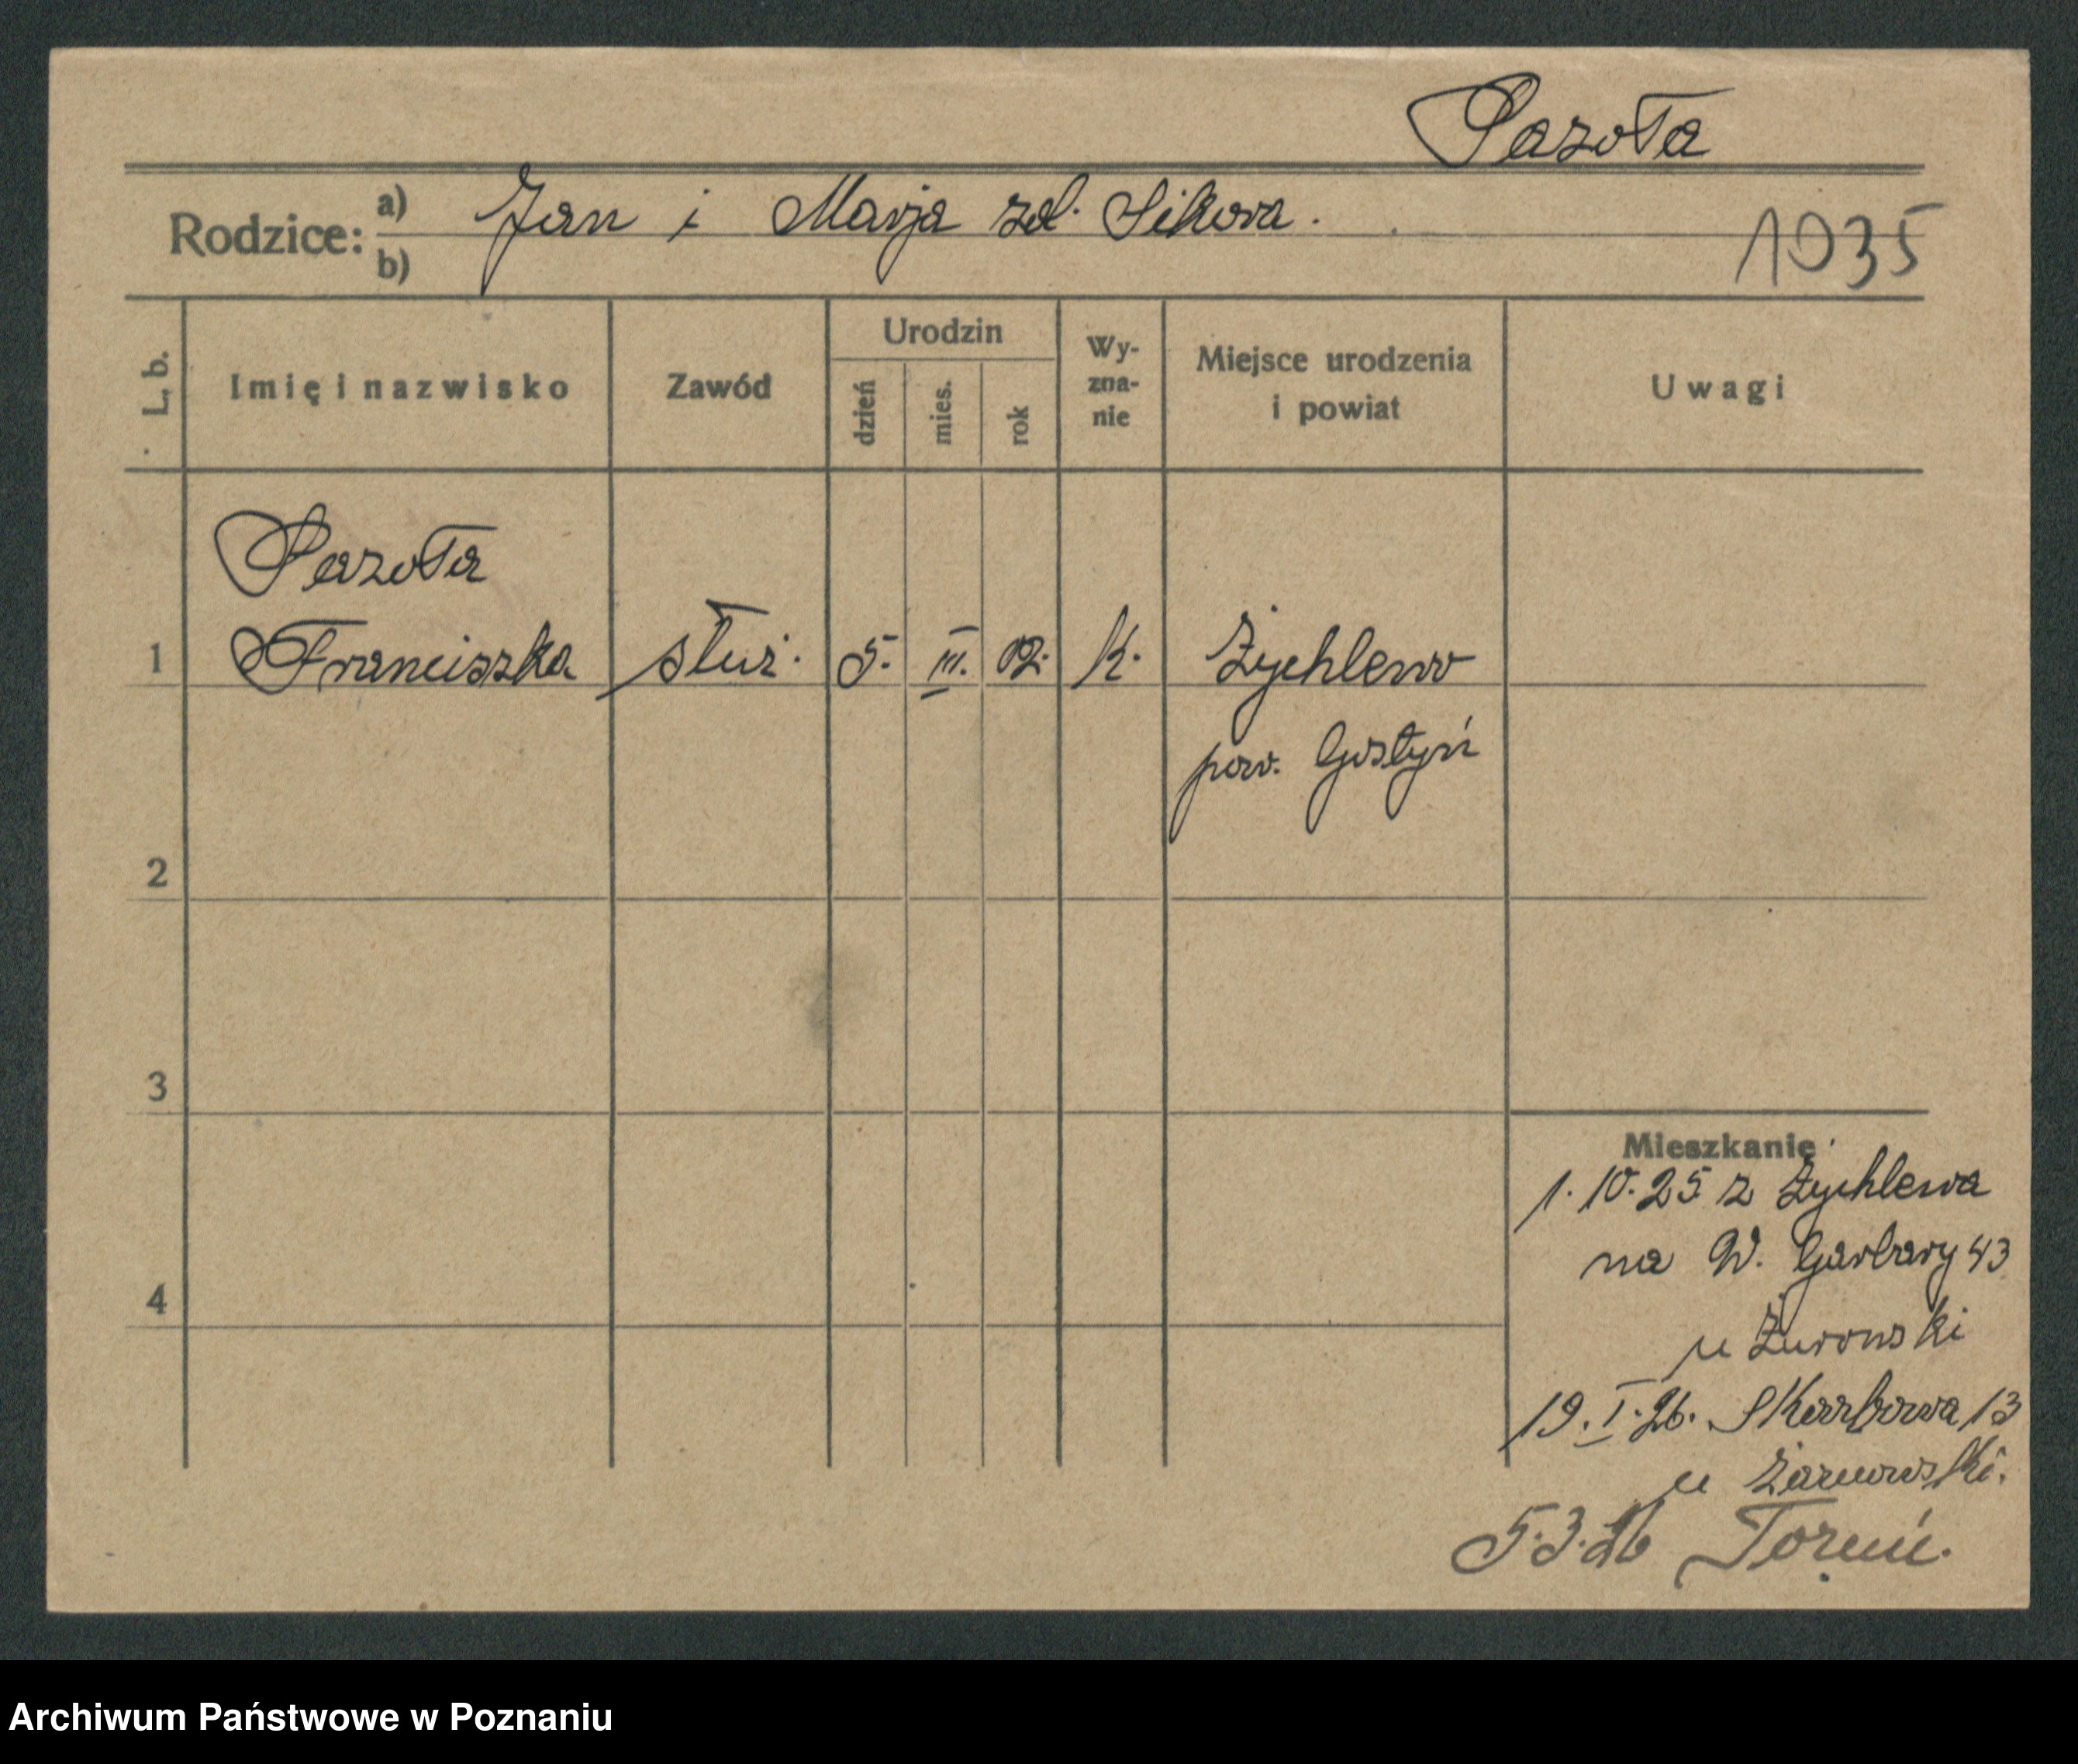 Pazoła
Rodzice: a) Jan i Marja zd. Sikora.
b)
1035
L. b.
Imię i nazwisko
Zawód
Urodzin
dzień
mies.
rok
Wy-
zna-
nie
Miejsce urodzenia
i powiat
Uwagi
Pazoła
1 Franciszka służ. 5. III. 02. k. Żychlewo
pow. Gostyń
2
3
4
Mieszkanie
1.10.25 z Żychlewa
na W. Garbary 43
u Żurowski
19.I.26. Skarbowa 13
u Żarnowski.
5.3.26 Toruń.
Archiwum Państwowe w Poznaniu